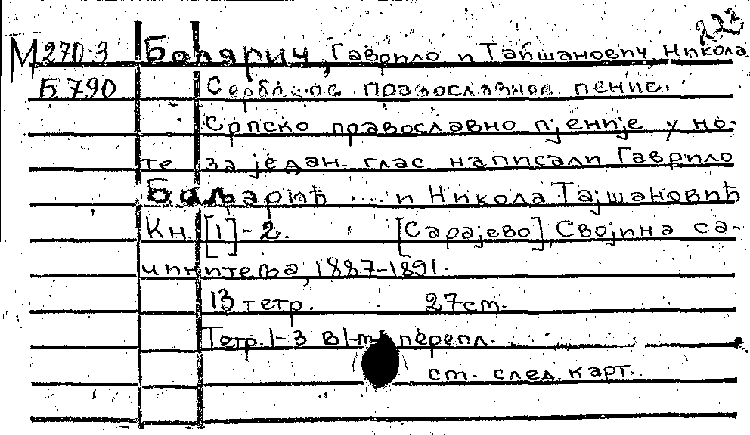 223
М 270.3 Боларич, Гаврило и Тайшанович, Никола
Б 790 Сербское православное пение.
Српско православно пјеније у но-
те за један глас написали Гаврило
Бољарић и Никола Тајшановић
Кн. [1]-2. [Сарајево], Својина са-
чинитеља, 1887-1891.
13 тетр. 27 ст.
Тетр. 1-3 в 1-m перепл.
ст. след. карт.